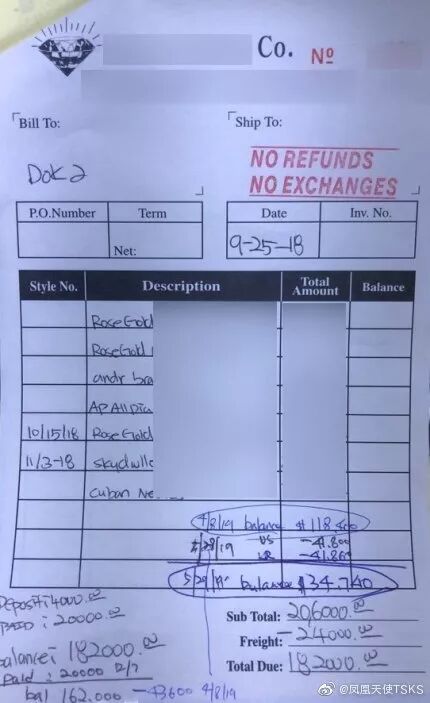 Co. Nº
Bill To:
Ship To:
Dok2
NO REFUNDS
NO EXCHANGES
P.O.Number Term Date Inv. No.
Net: 9-25-18
Style No. Description Total Amount Balance
RoseGold
RoseGold
andr bra
AP All Dia
10/15/18 RoseGold
11/3-18
Cuban Ne
4/8/19 balance $118,400
-41.800
-41.860
balance $34.740
Deposit: 4000.00
PAID: 20000.00
balance: 182000.00
Paid: 20000 12/7
bal 162.000 -43600 4/8/19
Sub Total: 206000.00
Freight: -24000.00
Total Due: 182000.00
@凤凰天使TSKS